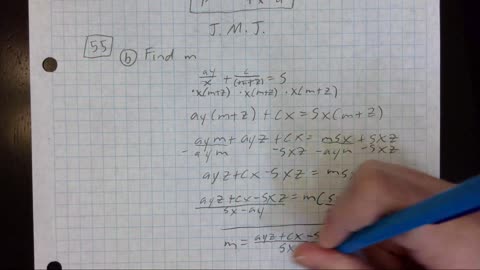 J. M. J.
55
b Find m
ay/x + c/(m+z) = 5
·x(m+z) ·x(m+z) ·x(m+z)
ay(m+z) + cx = 5x(m+z)
aym + ayz + cx = m5x + 5xz
- aym -5xz -aym -5xz
ayz + cx - 5xz = m5
ayz + cx - 5xz = m(5
5x - ay
m = ayz + cx - 5
5x